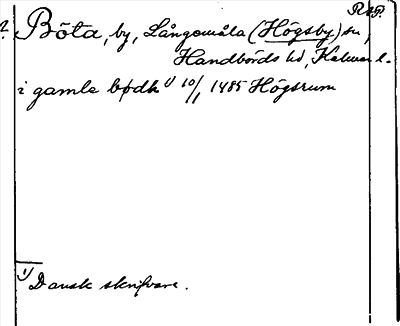 R&P.
? Böta, by, Långemåla (Högsby) sn,
Handbörds hd, Kalmar l.
i gamle bødh ¹⁾ 10/1 1485 Högsrum
¹⁾ Dansk skrifvare.